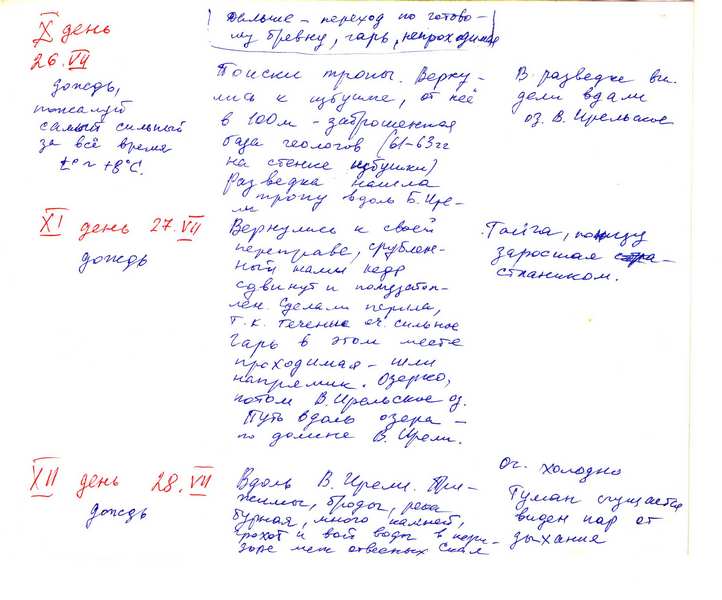 Дальше – переход по готово-
му бревну, гарь, непроходимая
X день
26.VII
дождь,
пожалуй
самый сильный
за всё время
t° ≈ +8°C.
Поиски тропы. Верну-
лись к избушке, от неё
в 100м – заброшенная
база геологов (61-63гг
на стенке избушки)
Разведка нашла
тропу вдоль Б. Ире-
ли
В разведке ви-
дели вдали
оз. В. Ирельское
XI день 27.VII
дождь
Вернулись к своей
переправе, срублен-
ный нами кедр
сдвинут и полузатоп-
лен. Сделали перила,
т.к. течение оч. сильное
Гарь в этом месте
проходимая – шли
напрямик. Озерко,
потом В. Ирельское оз.
Путь вдоль озера –
по долине В. Ирели.
Тайга, понизу
заросшая стра-
стлаником.
XII день 28.VII
дождь
Вдоль В. Ирели. При-
жимы, броды, река
бурная, много камней,
грохот и вой воды в
зоре меж отвесных скал
Оч. холодно
Туман сгущается
виден пар от
дыхания